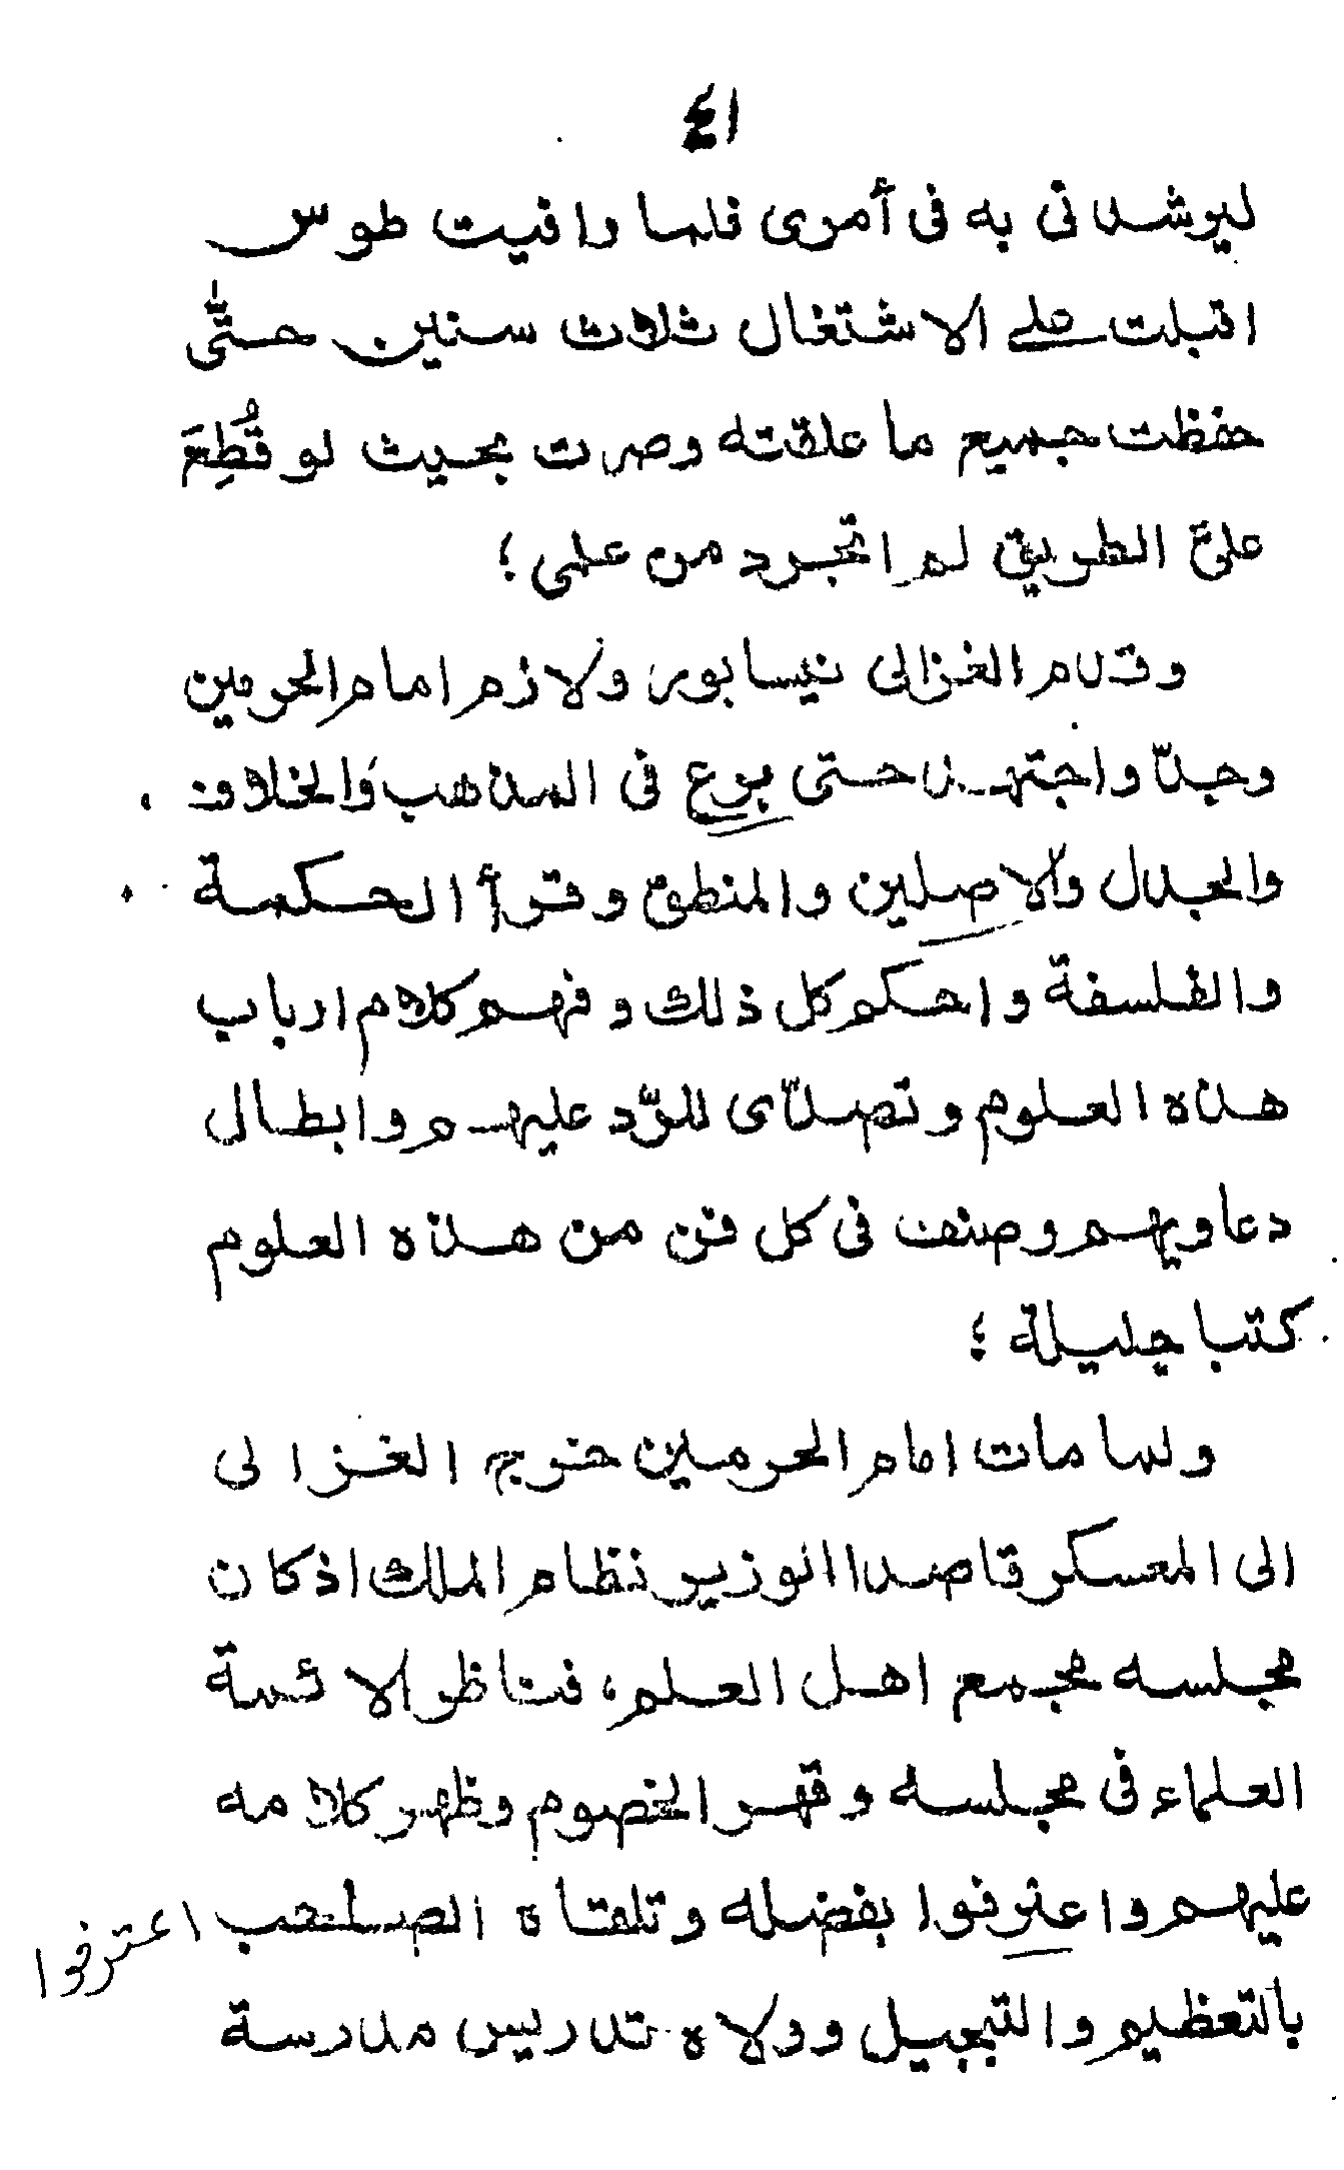 ٤١
ليرشدنى به فى أمرى فلما وافيت طوس
اقبلت على الاشتغال ثلاث سنين حتّٰى
حفظت جميع ما علقته وصرت بحيث لو قُطِعَ
علىّ الطريق لم اتجرد من علمى؛
وقدم الغزالى نيسابور ولازم امام الحرمين
وجدّ واجتهد حتى برع فى المذهب والخلاف
والجدل والاصلين والمنطق وقرأ الحكمة
والفلسفة واحكم كل ذلك وفهم كلام ارباب
هذه العلوم وتصدّى للرّد عليهم وابطال
دعاويهم وصنف فى كل فن من هذه العلوم
كتبا جليلة؛
ولما مات امام الحرمين خرج الغزالى
الى المعسكر قاصدا الوزير نظام الملك اذ كان
مجلسه مجمع اهل العلم، فناظر الائمة
العلماء فى مجلسه وقهر الخصوم وظهر كلامه
عليهم واعترفوا بفضله وتلقاه الصاحب
اعترفوا
بالتعظيم والتبجيل وولاه تدريس مدرسة